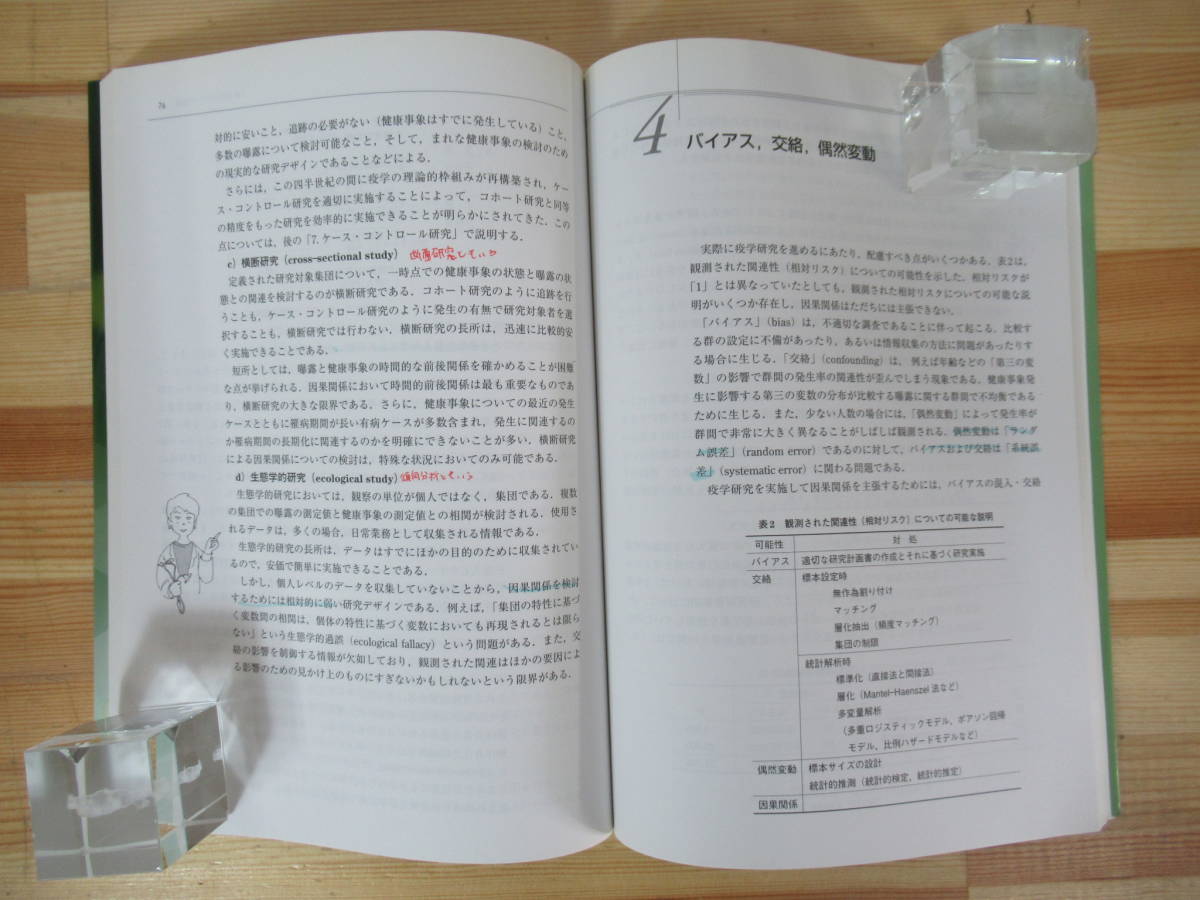 74
対的に安いこと，追跡の必要がない（健康事象はすでに発生している）こと，
多数の曝露について検討可能なこと，そして，まれな健康事象の検討のため
の現実的な研究デザインであることなどによる．
さらには，この四半世紀の間に疫学の理論的枠組みが再構築され，ケー
ス・コントロール研究を適切に実施することによって，コホート研究と同等
の精度をもった研究を効率的に実施できることが明らかにされてきた．この
点については，後の「7. ケース・コントロール研究」で説明する．
c）横断研究（cross-sectional study）
定義された研究対象集団について，一時点での健康事象の状態と曝露の状
態との関連を検討するのが横断研究である．コホート研究のように追跡を行
うことも，ケース・コントロール研究のように発生の有無で研究対象者を選
択することも，横断研究では行わない．横断研究の長所は，迅速に比較的安
く実施できることである．
短所としては，曝露と健康事象の時間的な前後関係を確かめることが困難
な点が挙げられる．因果関係において時間的前後関係は最も重要なものであ
り，横断研究の大きな限界である．さらに，健康事象についての最近の発生
ケースとともに罹病期間が長い有病ケースが多数含まれ，発生に関連するの
か罹病期間の長期化に関連するのかを明確にできないことが多い．横断研究
による因果関係についての検討は，特殊な状況においてのみ可能である．
d）生態学的研究（ecological study）
生態学的研究においては，観察の単位が個人ではなく，集団である．複数
の集団での曝露の測定値と健康事象の測定値との相関が検討される．使用さ
れるデータは，多くの場合，日常業務として収集される情報である．
生態学的研究の長所は，データはすでにほかの目的のために収集されてい
るので，安価で簡単に実施できることである．
しかし，個人レベルのデータを収集していないことから，因果関係を検討
するためには相対的に弱い研究デザインである．例えば，「集団の特性に基づ
く変数間の相関は，個体の特性に基づく変数においても再現されるとは限ら
ない」という生態学的過誤（ecological fallacy）という問題がある．また，交
絡の影響を制御する情報が欠如しており，観測された関連はほかの要因によ
る影響のための見かけ上のものにすぎないかもしれないという限界がある．
4 バイアス，交絡，偶然変動
実際に疫学研究を進めるにあたり，配慮すべき点がいくつかある．表2は，
観測された関連性（相対リスク）についての可能性を示した．相対リスクが
「1」とは異なっていたとしても，観測された相対リスクについての可能な説
明がいくつか存在し，因果関係はただちには主張できない．
「バイアス」（bias）は，不適切な調査であることに伴って起こる．比較す
る群の設定に不備があったり，あるいは情報収集の方法に問題があったりす
る場合に生じる．「交絡」（confounding）は，例えば年齢などの「第三の変
数」の影響で群間の発生率の関連性が歪んでしまう現象である．健康事象発
生に影響する第三の変数の分布が比較する曝露に関する群間で不均衡である
ために生じる．また，少ない人数の場合には，「偶然変動」によって発生率が
群間で非常に大きく異なることがしばしば観測される．偶然変動は「ランダ
ム誤差」（random error）であるのに対して，バイアスおよび交絡は「系統誤
差」（systematic error）に関わる問題である．
疫学研究を実施して因果関係を主張するためには，バイアスの混入・交絡
表2 観測された関連性（相対リスク）についての可能な説明
可能性 対 処
バイアス 適切な研究計画書の作成とそれに基づく研究実施
交絡 標本設定時
無作為割り付け
マッチング
層化抽出（頻度マッチング）
集団の制限
統計解析時
標準化（直接法と間接法）
層化（Mantel-Haenszel 法など）
多変量解析
（多重ロジスティックモデル，ポアソン回帰
モデル，比例ハザードモデルなど）
偶然変動 標本サイズの設計
統計的推測（統計的検定，統計的推定）
因果関係